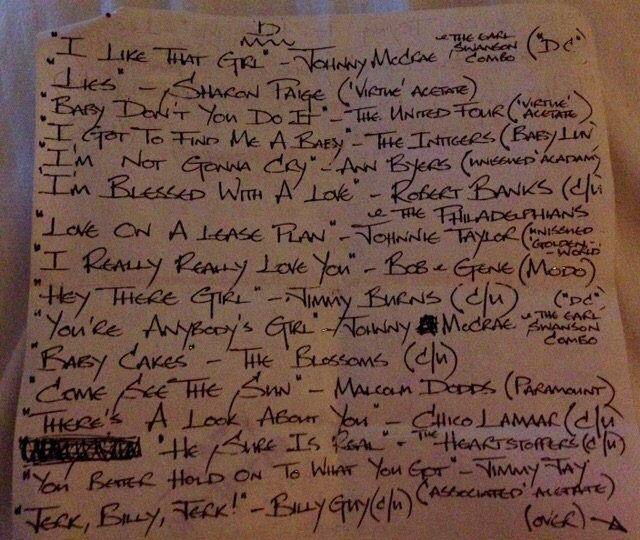 D
"I LIKE THAT GIRL" - JOHNNY MCCRAE & THE EARL SWANSON COMBO ("DC")
LIES" - SHARON PAIGE ('VIRTUE' ACETATE)
"BABY DON'T YOU DO IT" - THE UNITED FOUR ('VIRTUE' ACETATE)
"I GOT TO FIND ME A BABY" - THE INTIGERS (BABY LUV)
"I'M NOT GONNA CRY" - ANN BYERS (UNISSUED 'ACADAMY
"I'M BLESSED WITH A LOVE" - ROBERT BANKS (C/U)
& THE PHILADELPHIANS
"LOVE ON A LEASE PLAN" - JOHNNIE TAYLOR (UNISSUED 'GOLDEN-WORLD
"I REALLY REALLY LOVE YOU" - BOB & GENE (MODO)
"HEY THERE GIRL" - JIMMY BURNS (C/U)
"YOU'RE ANYBODY'S GIRL" - JOHNNY MCCRAE & THE EARL SWANSON COMBO ("DC")
"BABY CAKES - THE BLOSSOMS (C/U)
"COME SEE THE SUN" - MALCOLM DODDS (PARAMOUNT)
"THERE'S A LOOK ABOUT YOU" - CHICO LAMAAR (C/U)
"HE SURE IS REAL" - THE HEARTSTOPPERS (C/U)
"YOU BETTER HOLD ON TO WHAT YOU GOT" - JIMMY JAY ('ASSOCIATED' ACETATE)
"JERK, BILLY, JERK!" - BILLY GUY (C/U)
(OVER) →